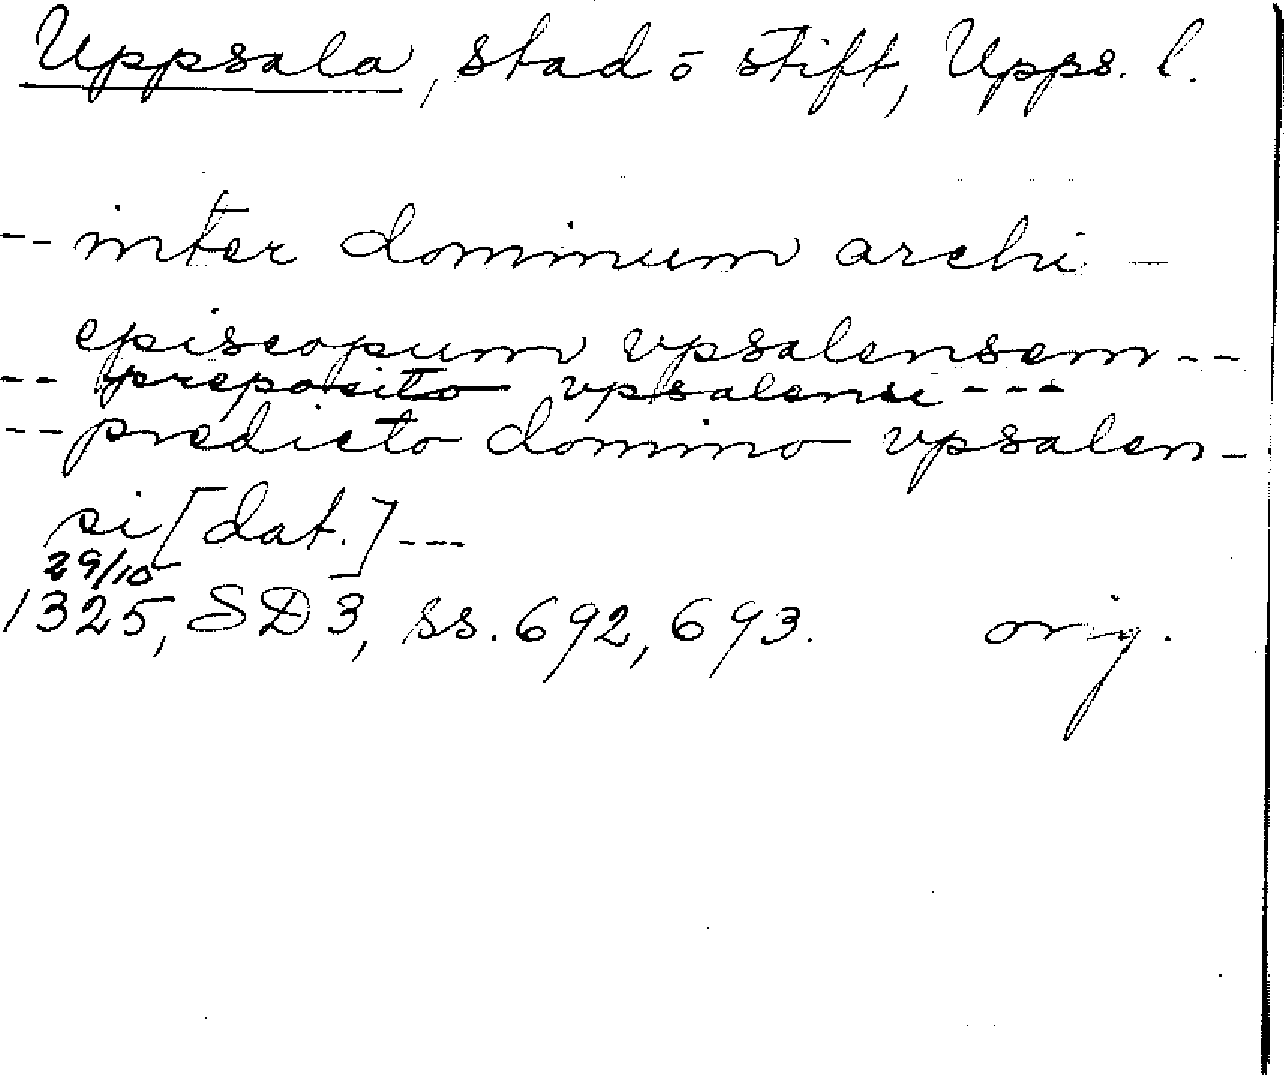 Uppsala, stad ō stift, Upps. l.
-- inter dominum archi-
episcopum vpsalensem --
-- preposito vpsalensi ---
-- predicto domino vpsalen-
si [dat.] ---
29/10
1325, SD 3, ss. 692, 693. orig.